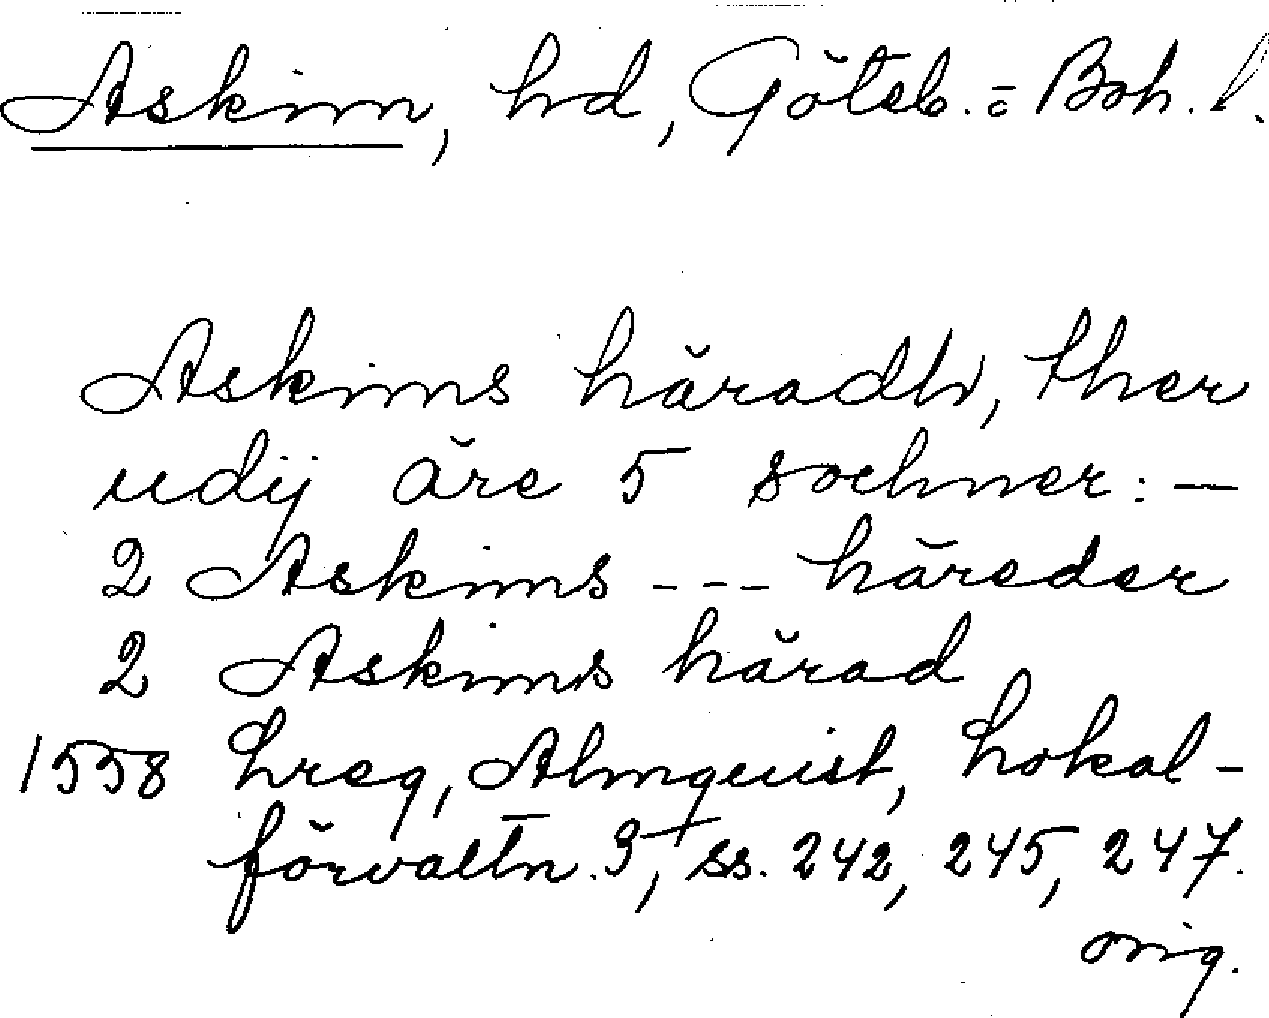 Askim, hd, Göteb. = Boh. l.
Askims häradh, ther
udij äre 5 sochner: —
2 Askims --- häreder
2 Askims härad
1558 Lreg, Almquist, Lokal-
förvaltn. 3, ss. 242, 245, 247.
orig.